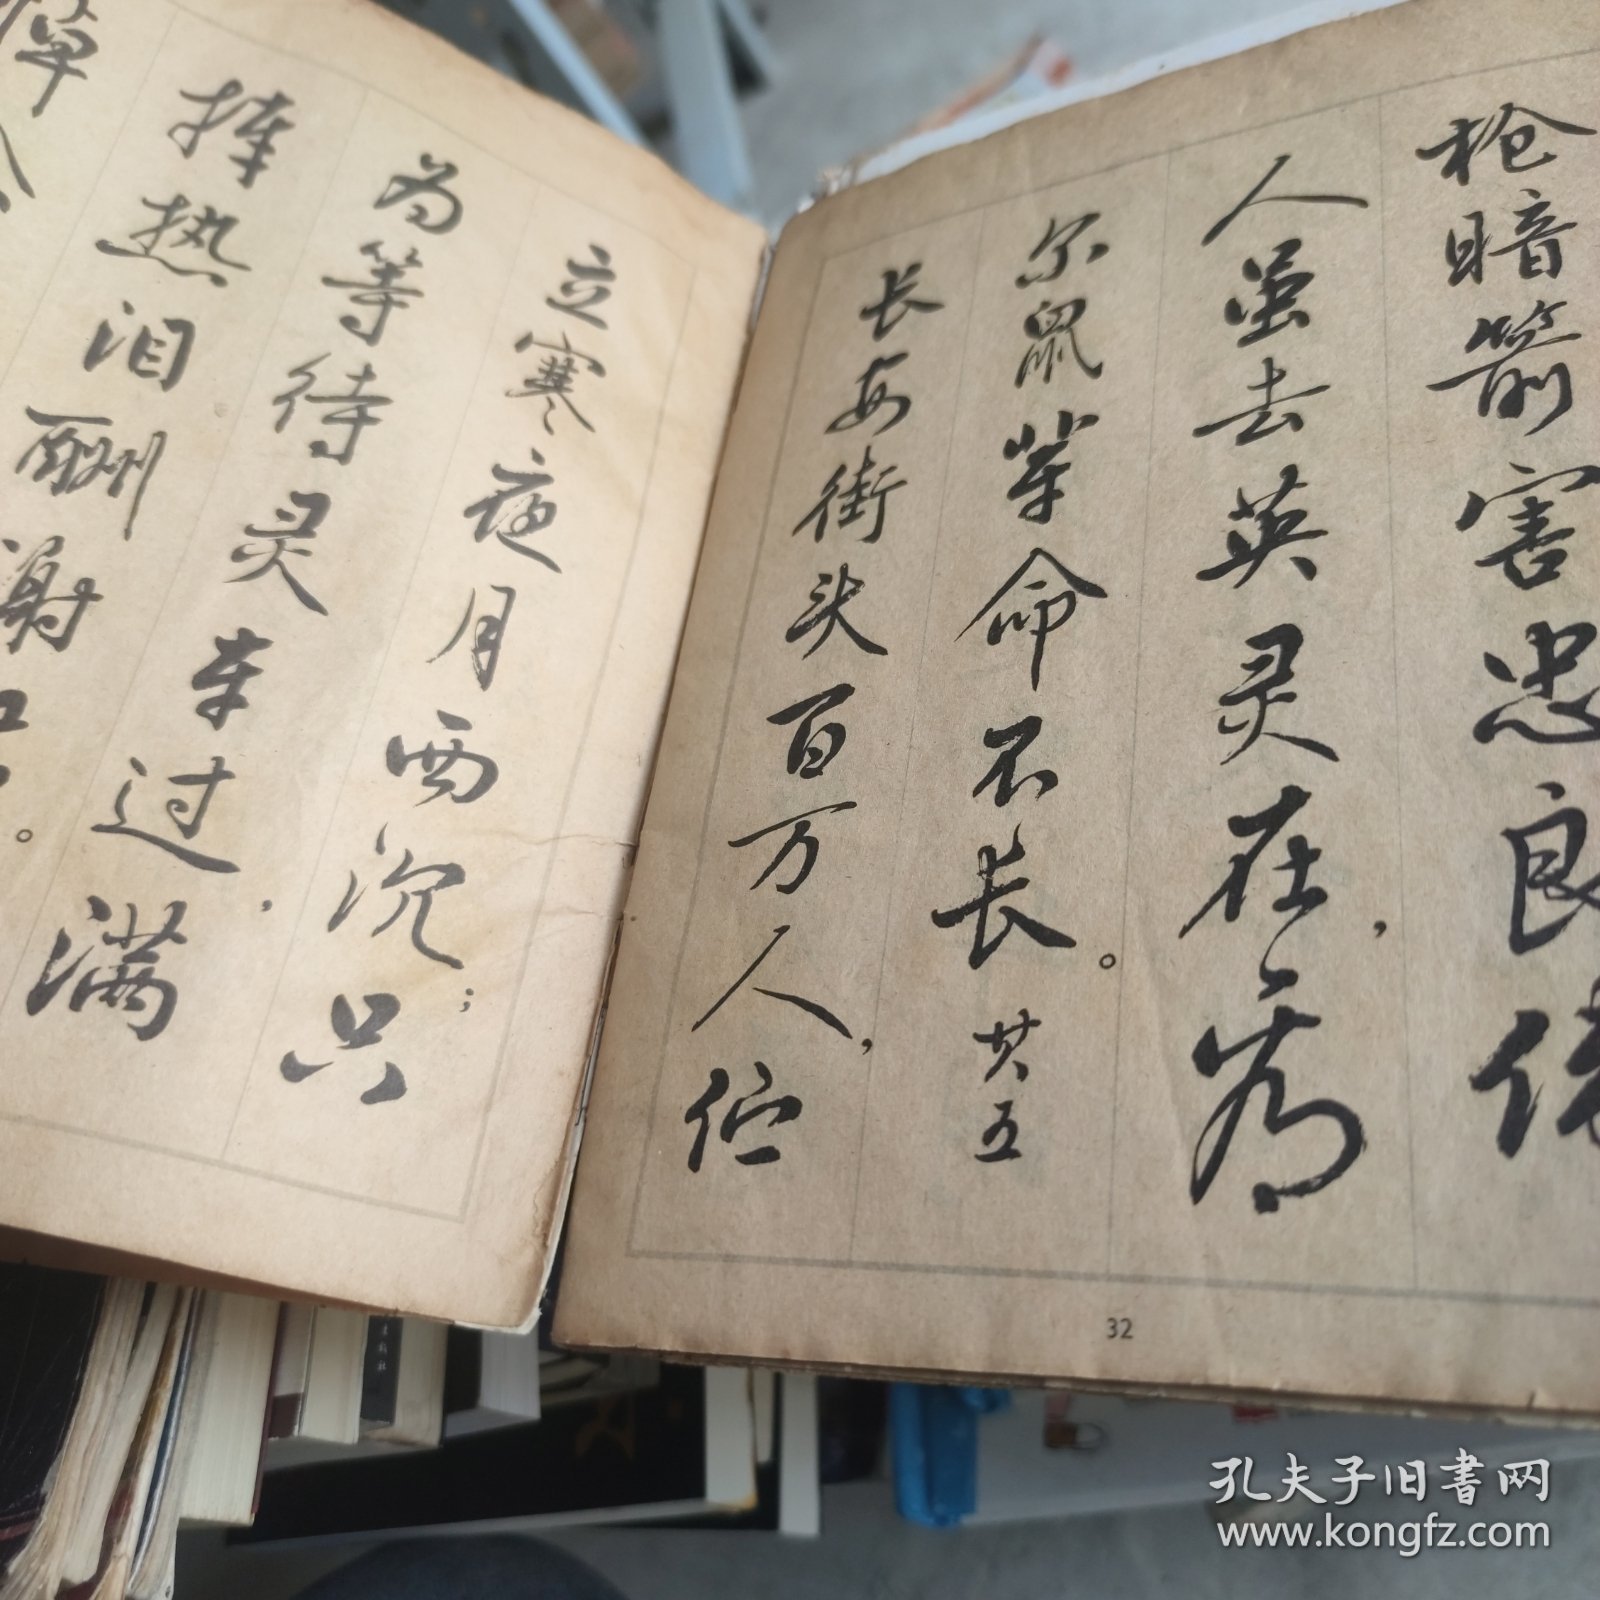 枪暗箭害忠良
人虽去英灵在，
尔鼠辈命不长。其五
长安街头百万人，伫
立寒夜月西沉；只
为等待灵车过，满
捧热泪酬谢
32
孔夫子旧书网
www.kongfz.com